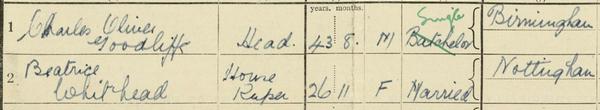 years. months.
1 Charles Oliver Goodliffe Head. 43 8. M Single Batchelor Birmingham
2 Beatrice Whitehead House Keeper 26 11 F Married Nottingham